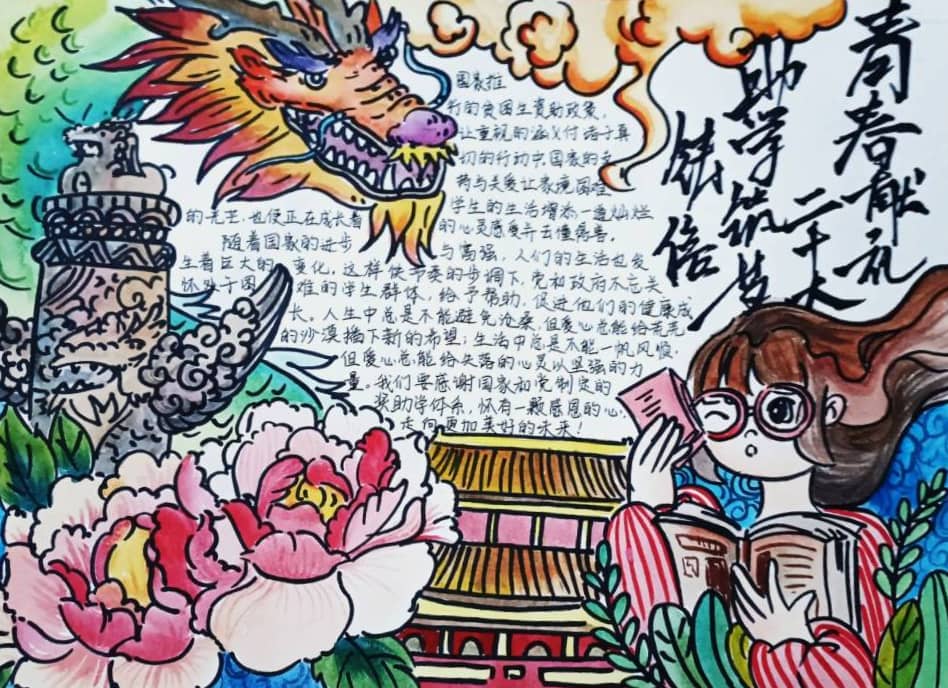 青春献礼
二十大
助学筑梦
铸信
国家推
行的贫困生资助政策，
让重视的涵义付诸于真
切的行动中，国家的支
持与关爱让家境困难
学生的生活增添一道灿烂
的光芒，也使正在成长着
的心灵感受并去懂得善。
随着国家的进步
与富强，人们的生活也发
生着巨大的变化，这样快节奏的步调下，党和政府不忘关
怀处于困难的学生群体，给予帮助，促进他们的健康成
长。人生中总是不能避免沧桑，但爱心总能给荒芜
的沙漠播下新的希望；生活中总是不能一帆风顺，
但爱心总能给失落的心灵以坚强的力
量。我们要感谢国家和党制定的
奖助学体系，怀有一颗感恩的心，
走向更加美好的未来！